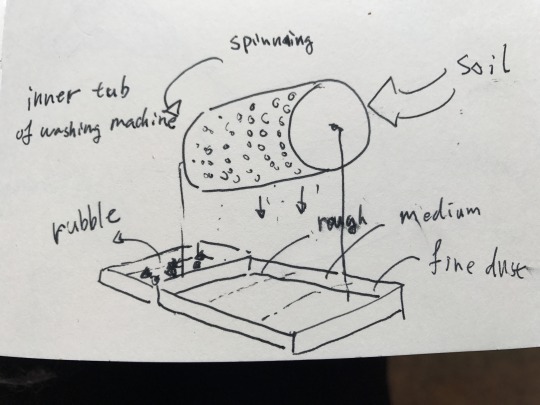 spinnaing
soil
inner tub
of washing machine
rubble
rough
medium
fine dust